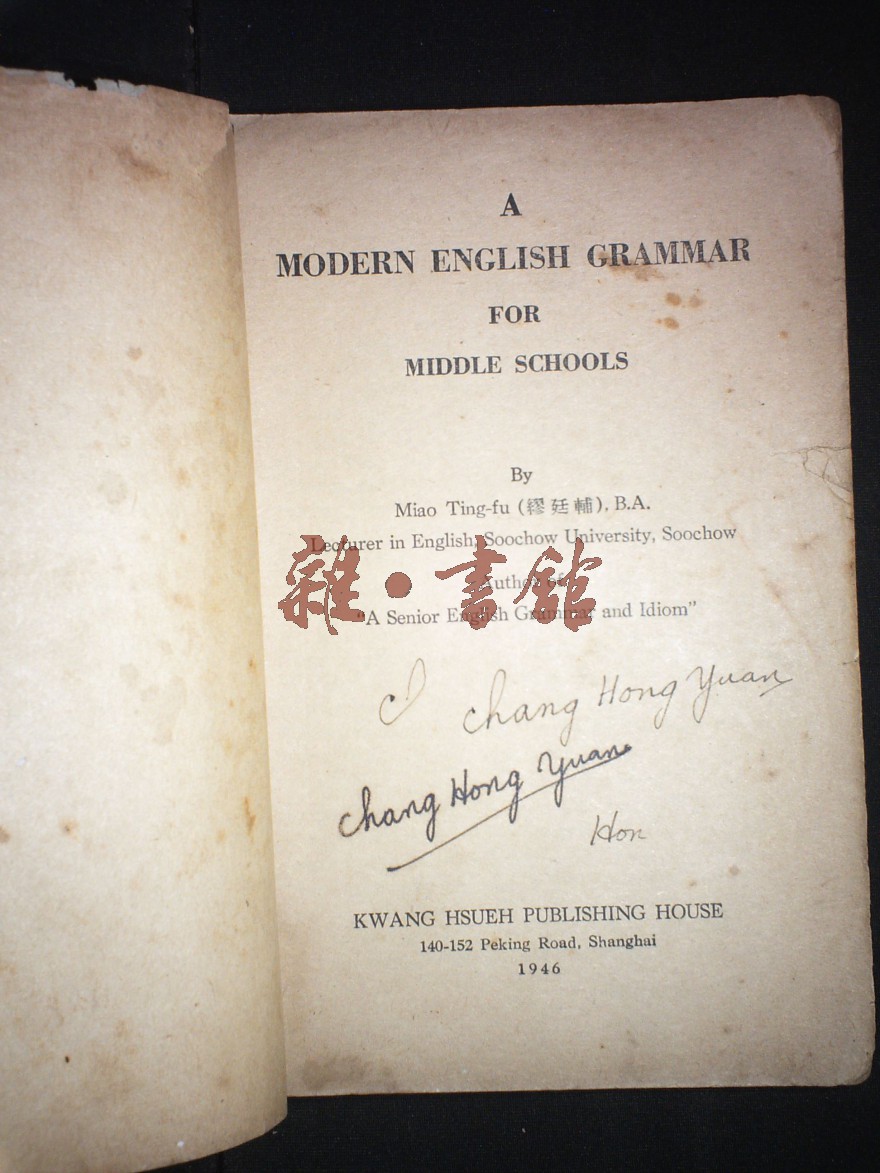 A
MODERN ENGLISH GRAMMAR
FOR
MIDDLE SCHOOLS
By
Miao Ting-fu (繆廷輔), B.A.
Lecturer in English, Soochow University, Soochow
Author of
雜·書館
"A Senior English Grammar and Idiom"
C
Chang Hong Yuan
Chang Hong Yuan
Hon
KWANG HSUEH PUBLISHING HOUSE
140-152 Peking Road, Shanghai
1946